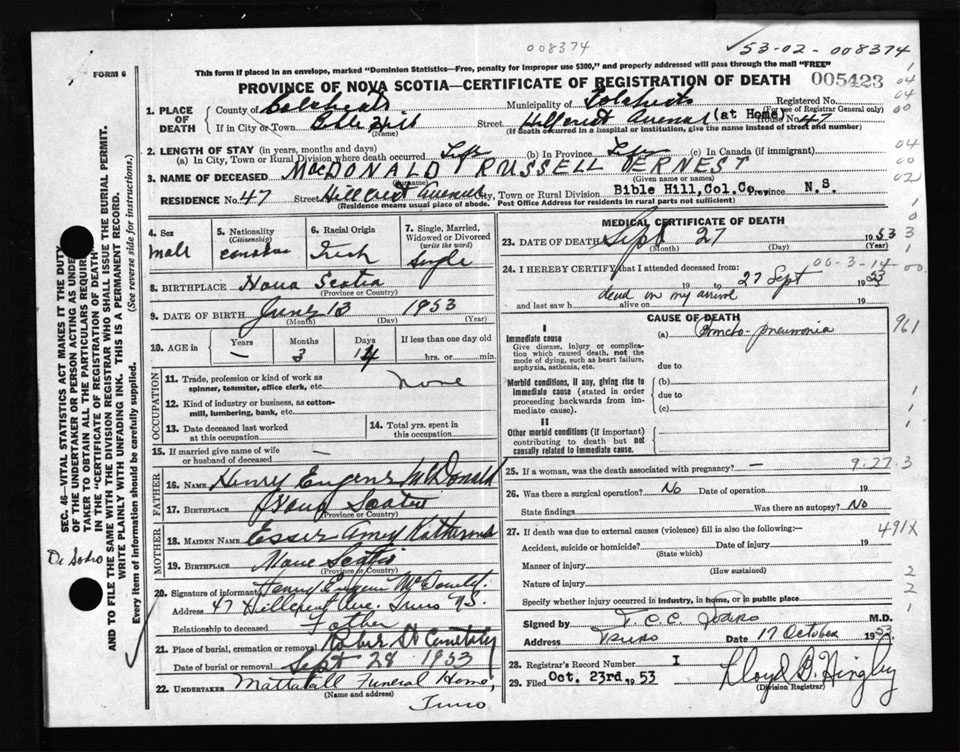 008374
53-02-008374
FORM 6
This form if placed in an envelope, marked "Dominion Statistics—Free, penalty for improper use $300," and properly addressed will pass through the mail "FREE"
PROVINCE OF NOVA SCOTIA—CERTIFICATE OF REGISTRATION OF DEATH 005423
1. PLACE OF DEATH
County of Colchester Municipality of Colchester Registered No.
(For use of Registrar General only)
If in City or Town Bible Hill Street Hillcrest Avenue (at Home) House No. 47
(Name) (If death occurred in a hospital or institution, give name instead of street and number)
2. LENGTH OF STAY (in years, months and days)
(a) In City, Town or Rural Division where death occurred Life (b) In Province Life (c) In Canada (if immigrant)
3. NAME OF DECEASED MacDONALD RUSSELL VERNEST
(Surname) (Given name or names)
RESIDENCE No. 47 Street Hillcrest Avenue City, Town or Rural Division Bible Hill, Col. Co., Province N.S.
(Residence means usual place of abode. Post Office Address for residents in rural parts not sufficient)
4. Sex male
5. Nationality (Citizenship) canadian
6. Racial Origin Irish
7. Single, Married, Widowed or Divorced (write the word) Single
8. BIRTHPLACE Nova Scotia
(Province or Country)
9. DATE OF BIRTH June 13 1953
(Month) (Day) (Year)
10. AGE in Years Months Days If less than one day old
— 3 14 hrs. or min.
OCCUPATION
11. Trade, profession or kind of work as spinner, teamster, office clerk, etc. None
12. Kind of industry or business, as cotton-mill, lumbering, bank, etc.
13. Date deceased last worked at this occupation
14. Total yrs. spent in this occupation
15. If married give name of wife or husband of deceased —
FATHER
16. NAME Henry Eugene McDonald
17. BIRTHPLACE Nova Scotia
(Province or Country)
MOTHER
18. MAIDEN NAME Esser Amey Katherine
19. BIRTHPLACE Nova Scotia
(Province or Country)
20. Signature of informant Henry Eugene McDonald
Address 47 Hillcrest Ave. Truro N.S.
Relationship to deceased Father
21. Place of burial, cremation or removal Robie St Cemetery
Date of burial or removal Sept 28 1953
22. UNDERTAKER Mattatall Funeral Home,
(Name and address)
Truro
MEDICAL CERTIFICATE OF DEATH
23. DATE OF DEATH Sept 27 1953
(Month) (Day) (Year)
00-3-14-00
24. I HEREBY CERTIFY that I attended deceased from:
19 to 27 Sept 1953
and last saw h alive on 19
dead on my arrival
CAUSE OF DEATH
I
Immediate cause
Give disease, injury or complication which caused death, not the mode of dying, such as heart failure, asphyxia, asthenia, etc.
(a) Broncho-pneumonia
due to
Morbid conditions, if any, giving rise to immediate cause (stated in order proceeding backwards from immediate cause).
(b)
due to
(c)
II
Other morbid conditions (if important) contributing to death but not causally related to immediate cause.
25. If a woman, was the death associated with pregnancy? — 9-27-3
26. Was there a surgical operation? No Date of operation 19
State findings Was there an autopsy? No
27. If death was due to external causes (violence) fill in also the following:—
491X
Accident, suicide or homicide? Date of injury 19
(State which)
Manner of injury
(How sustained)
Nature of injury
Specify whether injury occurred in industry, in home, or in public place
Signed by M.D.
Address Truro Date 17 October 1953
28. Registrar's Record Number I
29. Filed Oct. 23rd 1953 Lloyd B. Hingley
(Division Registrar)
SEC. 46—VITAL STATISTICS ACT MAKES IT THE DUTY
OF THE UNDERTAKER OR PERSON ACTING AS UNDER-
TAKER TO OBTAIN ALL THE PARTICULARS REQUIRED
IN THE "CERTIFICATE OF REGISTRATION OF DEATH"
AND TO FILE THE SAME WITH THE DIVISION REGISTRAR WHO SHALL ISSUE THE BURIAL PERMIT.
WRITE PLAINLY WITH UNFADING INK. THIS IS A PERMANENT RECORD.
Every item of information should be carefully supplied. (See reverse side for instructions.)
1
04
04
00
04
00
02
1
0
3
961
1
1
1
2
2
1